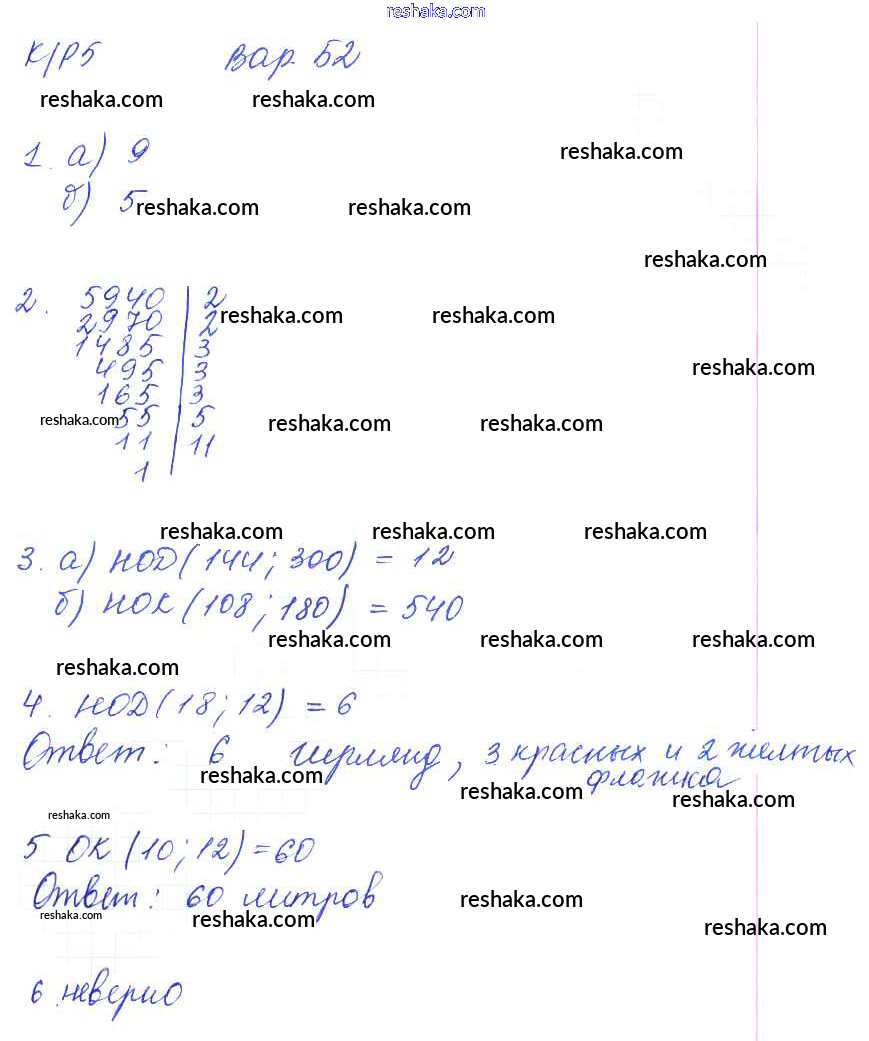 reshaka.com
К/Р5 Вар. Б2
reshaka.com reshaka.com
1. а) 9
reshaka.com
б) 5
reshaka.com reshaka.com
reshaka.com
2. 5940 | 2
2970 | 2
reshaka.com reshaka.com
1485 | 3
495 | 3
reshaka.com
165 | 3
55 | 5
reshaka.com reshaka.com reshaka.com
11 | 11
1
reshaka.com reshaka.com reshaka.com
3. а) НОД (144; 300) = 12
б) НОК (108; 180) = 540
reshaka.com reshaka.com reshaka.com
reshaka.com
4. НОД (18; 12) = 6
Ответ: 6 гирлянд, 3 красных и 2 желтых
флажка
reshaka.com reshaka.com reshaka.com
reshaka.com
5 ОК (10; 12) = 60
Ответ: 60 литров
reshaka.com reshaka.com reshaka.com reshaka.com
6. неверно